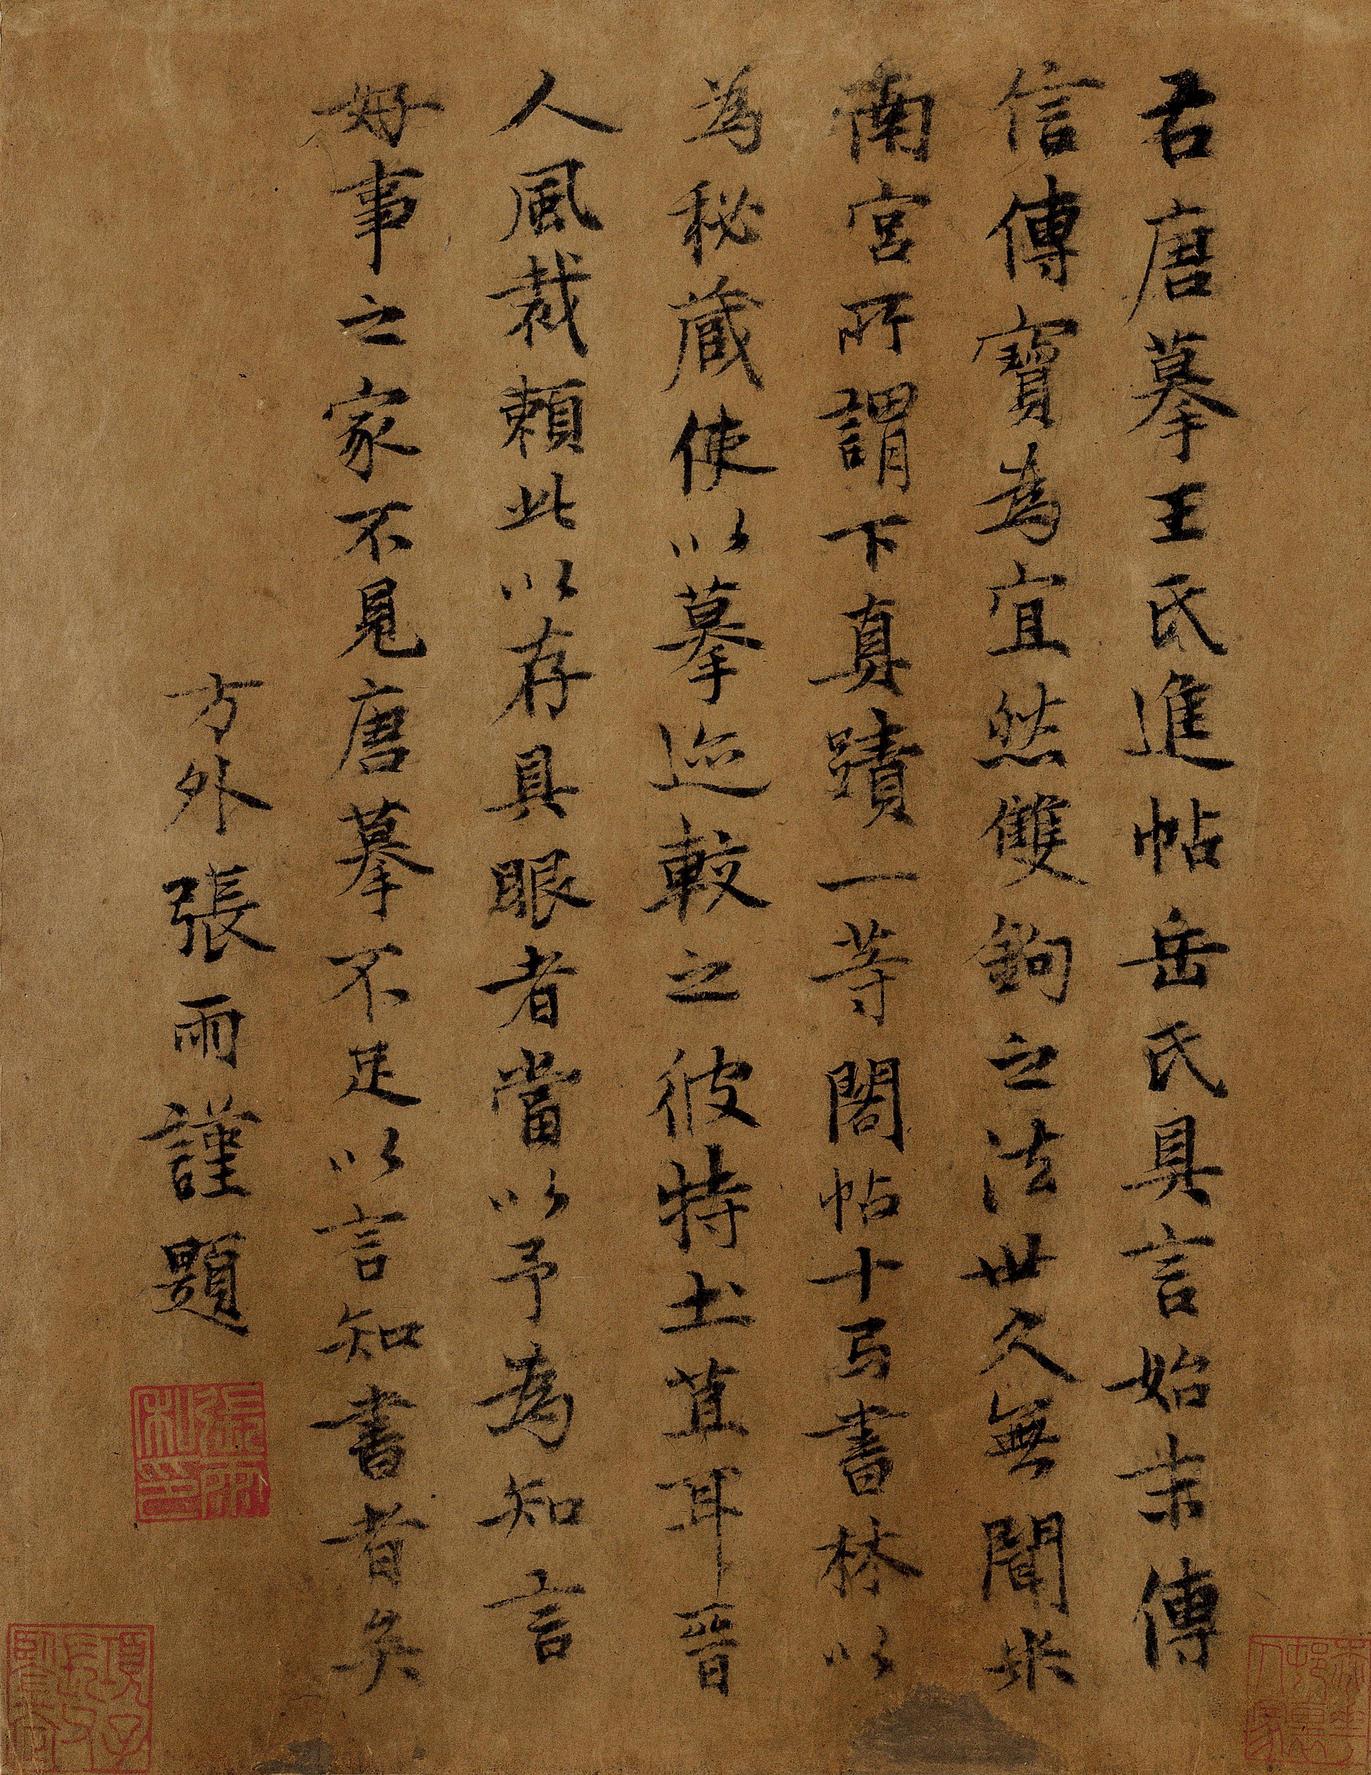 右唐摹王氏進帖岳氏具言始末傳
信傳寶為宜然雙鉤之法世久無聞米
南宮所謂下真蹟一等閣帖十㢧書林以
為秘藏使以摹迹較之彼特土苴耳晉
人風裁賴此以存具眼者當以予為知言
好事之家不見唐摹不足以言知書者矣
方外張雨謹題
張雨私印
項子